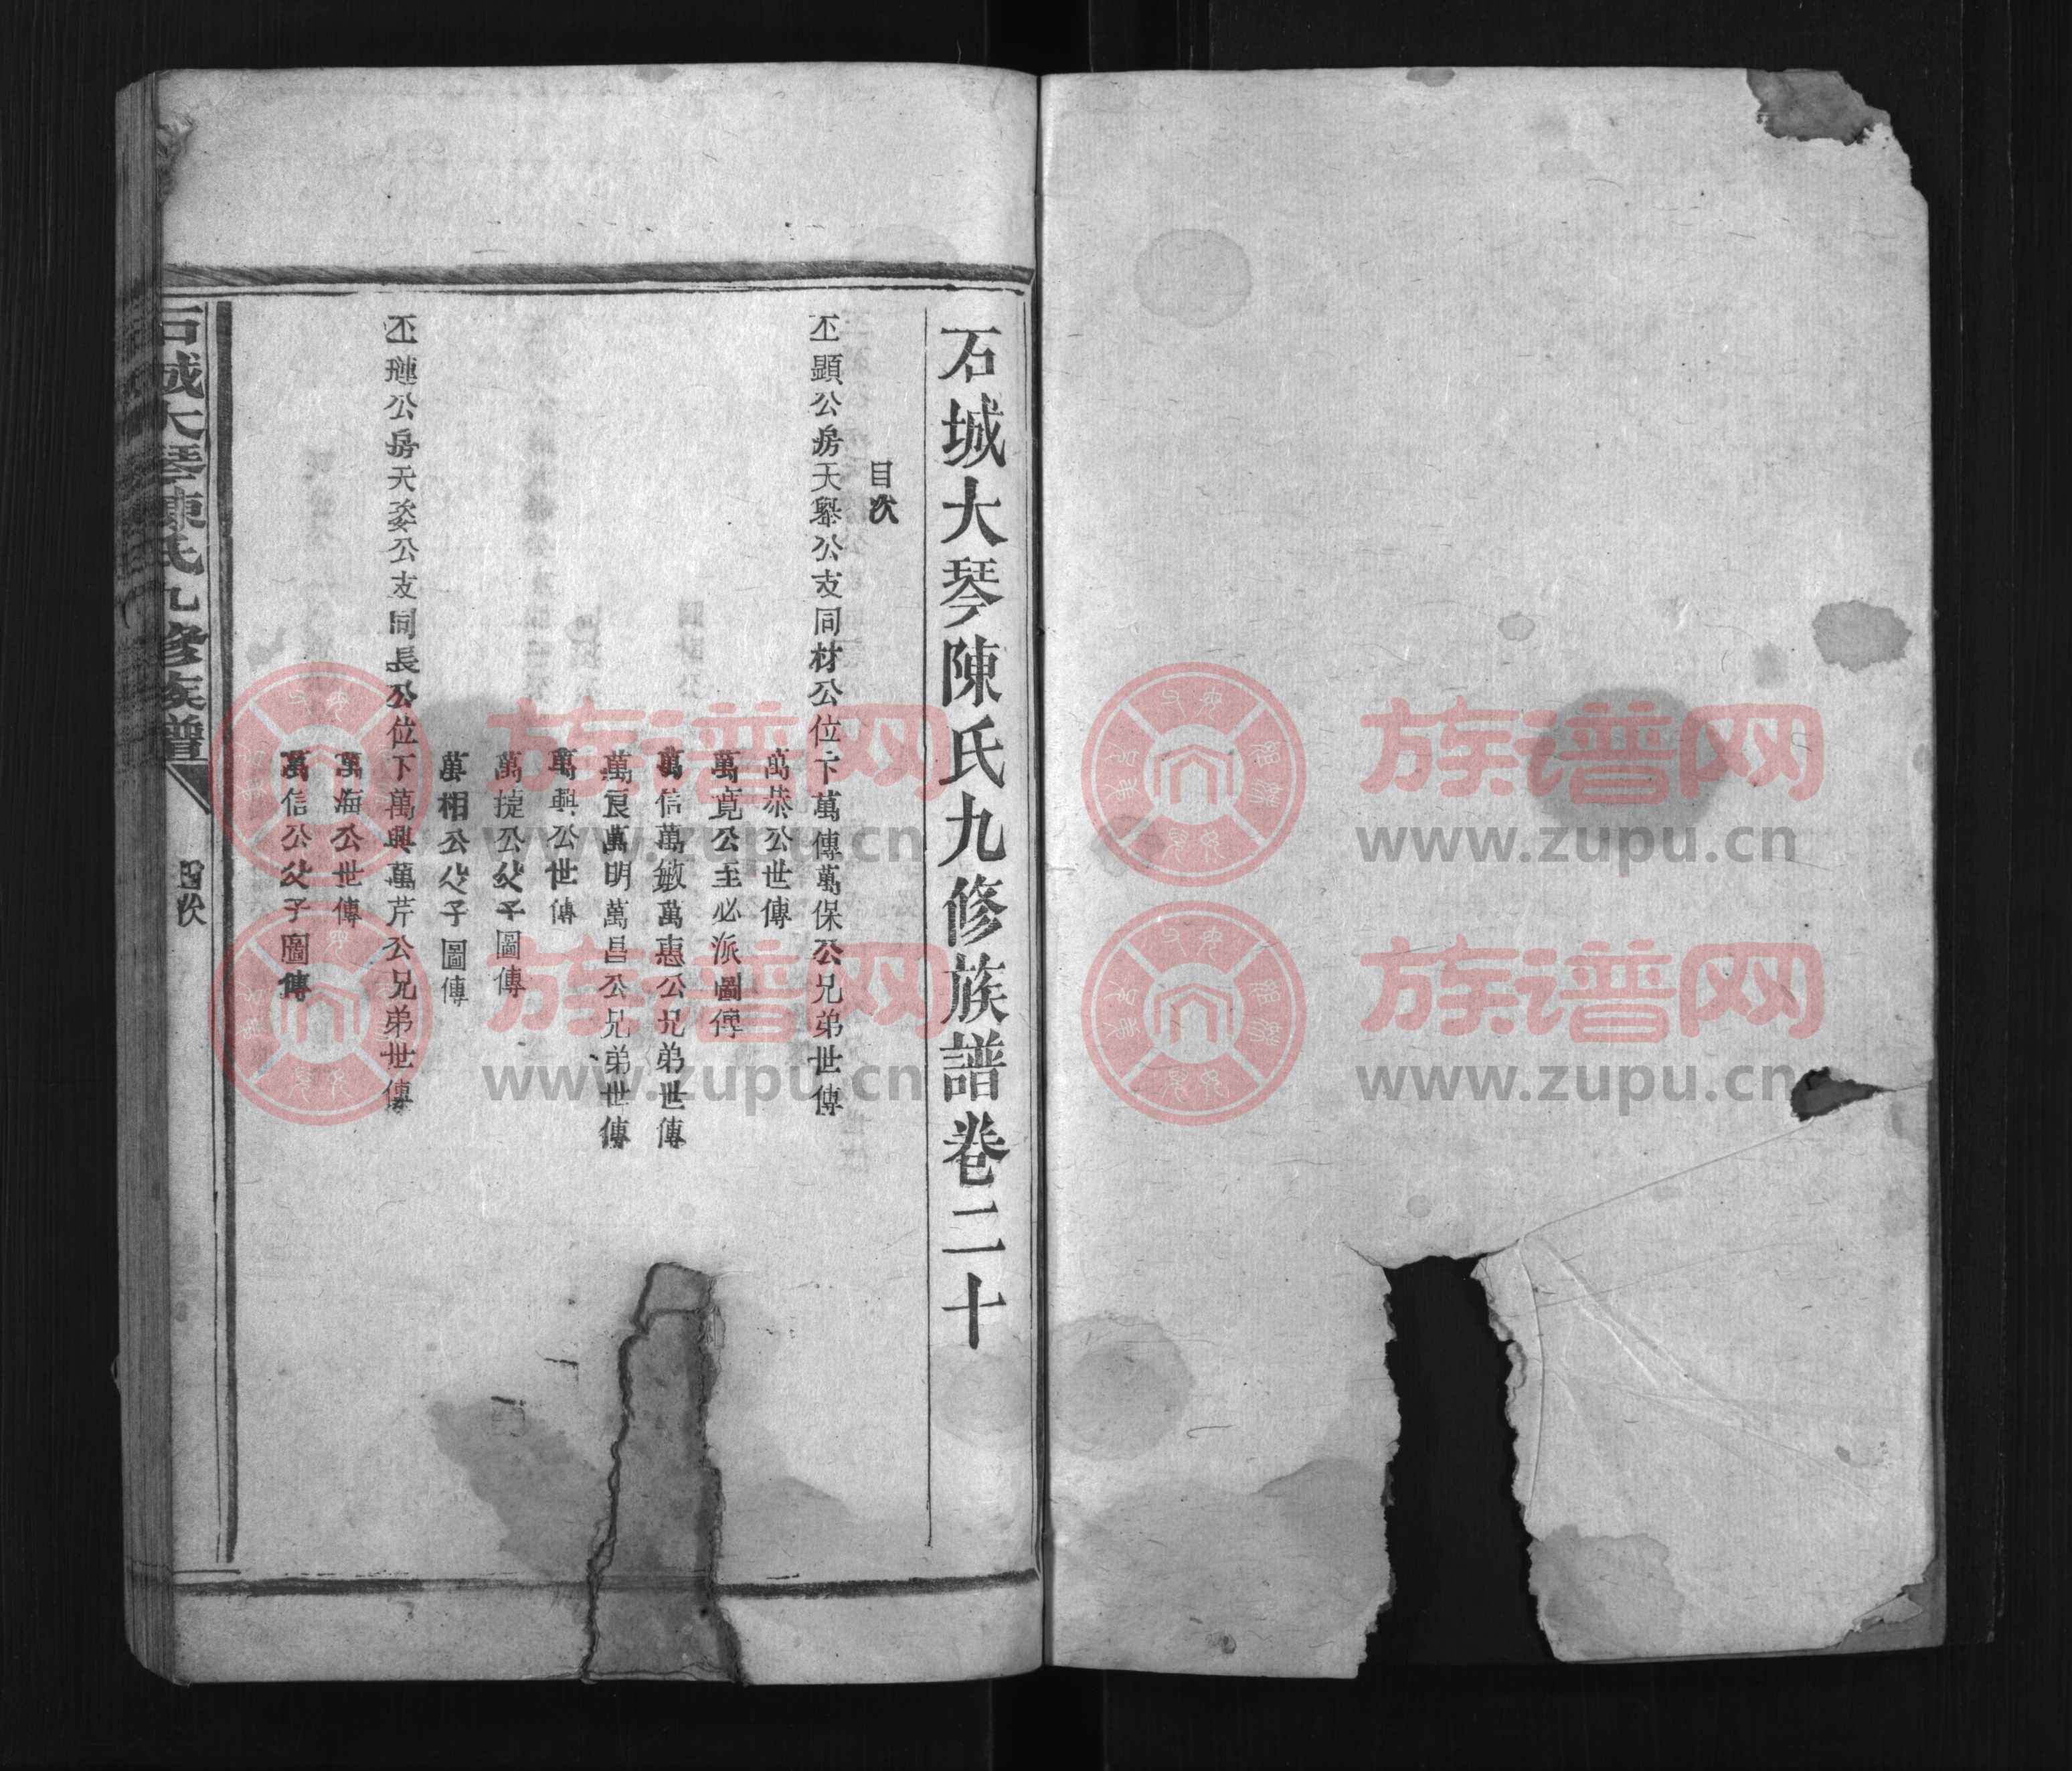 石城大琴陳氏九修族譜卷二十
目次
丕顯公房天舉公支同材公位下萬傳萬保公兄弟世傳
萬恭公世傳
萬寬公至必派圖傳
萬信萬敏萬惠公兄弟世傳
萬良萬明萬昌公兄弟世傳
萬興公世傳
萬捷公父子圖傳
萬相公父子圖傳
丕璉公房天姿公支同長公位下萬興萬芹公兄弟世傳
萬海公世傳
萬信公父子圖傳
石城大琴陳氏九修族譜
目次
族谱网
www.zupu.cn
族谱网
www.zupu.cn
族谱网
www.zupu.cn
族谱网
www.zupu.cn